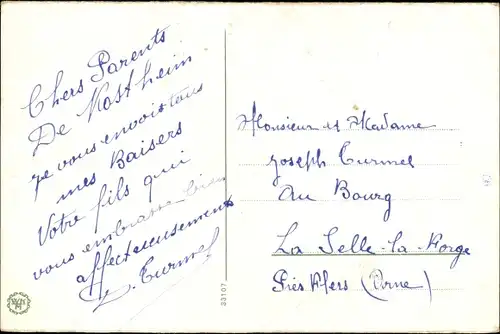 Chers Parents
De Kostheim
je vous envois tous
mes Baisers
Votre fils qui
vous embrasse bien
affectueusement
Turmel
33107
Monsieur et Madame
Joseph Turmel
Au Bourg
La Selle-la-Forge
Près Flers (Orne)